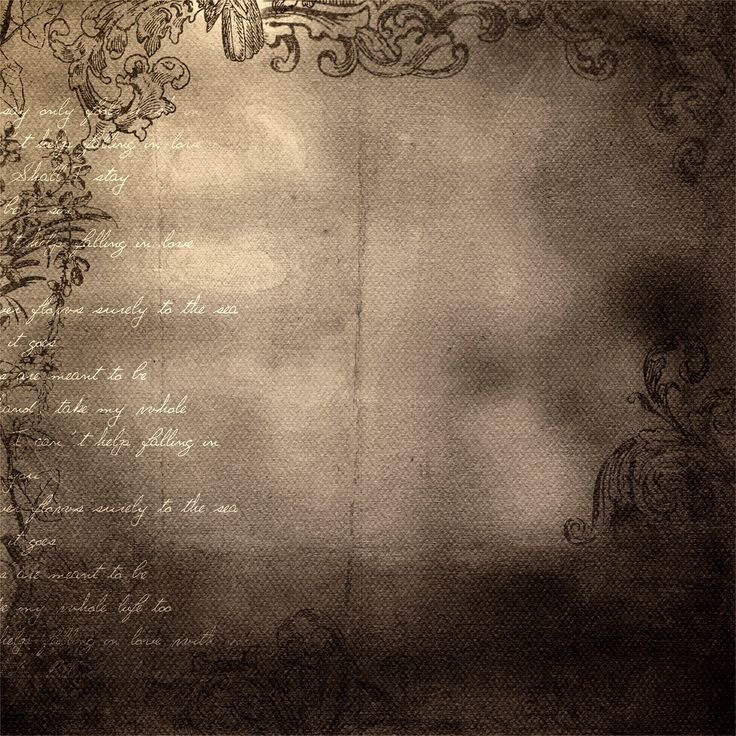 say only
't help falling in love
Shall I stay
be a sin
't help falling in love
er flows surely to the sea
it goes
s are meant to be
hand take my whole
I can't help falling in
you
er flows surely to the sea
it goes
s are meant to be
ke my whole life too
help falling in love with